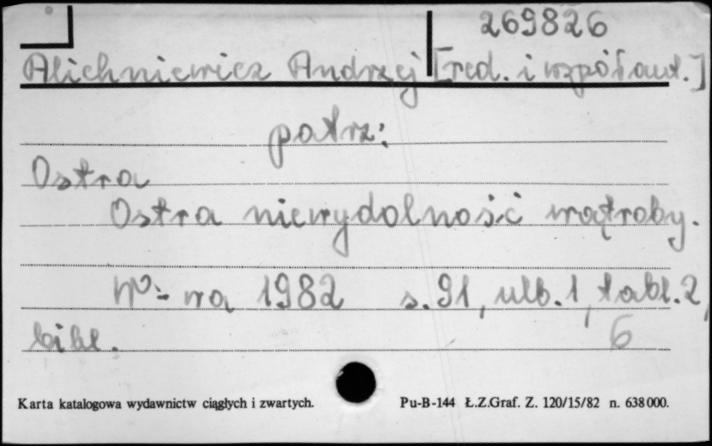 269826
Alichniewicz Andrzej [red. i współaut.]
patrz:
Ostra
Ostra niewydolność wątroby.
W-wa 1982 s. 91, ulb. 1, tabl. 2,
bibl. 6
Karta katalogowa wydawnictw ciągłych i zwartych. Pu-B-144 Ł.Z.Graf. Z. 120/15/82 n. 638000.